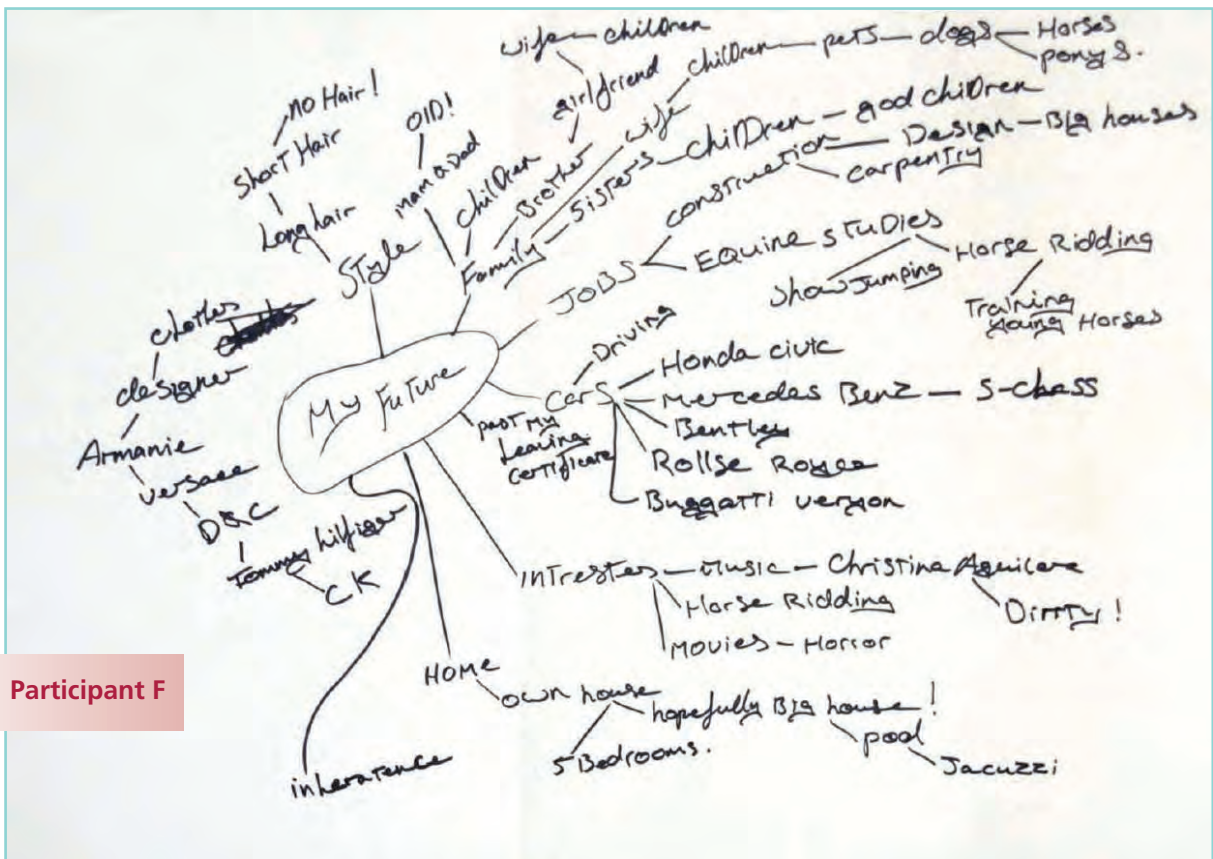 My Future
Style
Long hair
Short Hair
no Hair!
clothes
designer
Armanie
versace
D&C
Tommy hilfiger
CK
Family
Mam & Dad
OlD!
children
Brother
girlfriend
wife — children
wife
children — pets — dogs — Horses
ponys.
Sisters — chilDren — god children
JOBS
construction — Design — Big houses
carpentry
EQuine stuDies
Show Jumping
Horse Ridding
Training
young Horses
Cars
Driving
Honda civic
Mercedes Benz — S-class
Bentley
Rollse Royce
Buggatti veryon
past My
Leaving
certificate
intrestes — Music — Christina Aguilara
Dirrty!
Horse Ridding
Movies — Horror
HOMe
own house
hopefully Big house!
5 Bedrooms.
pool
Jacuzzi
inheratence
Participant F